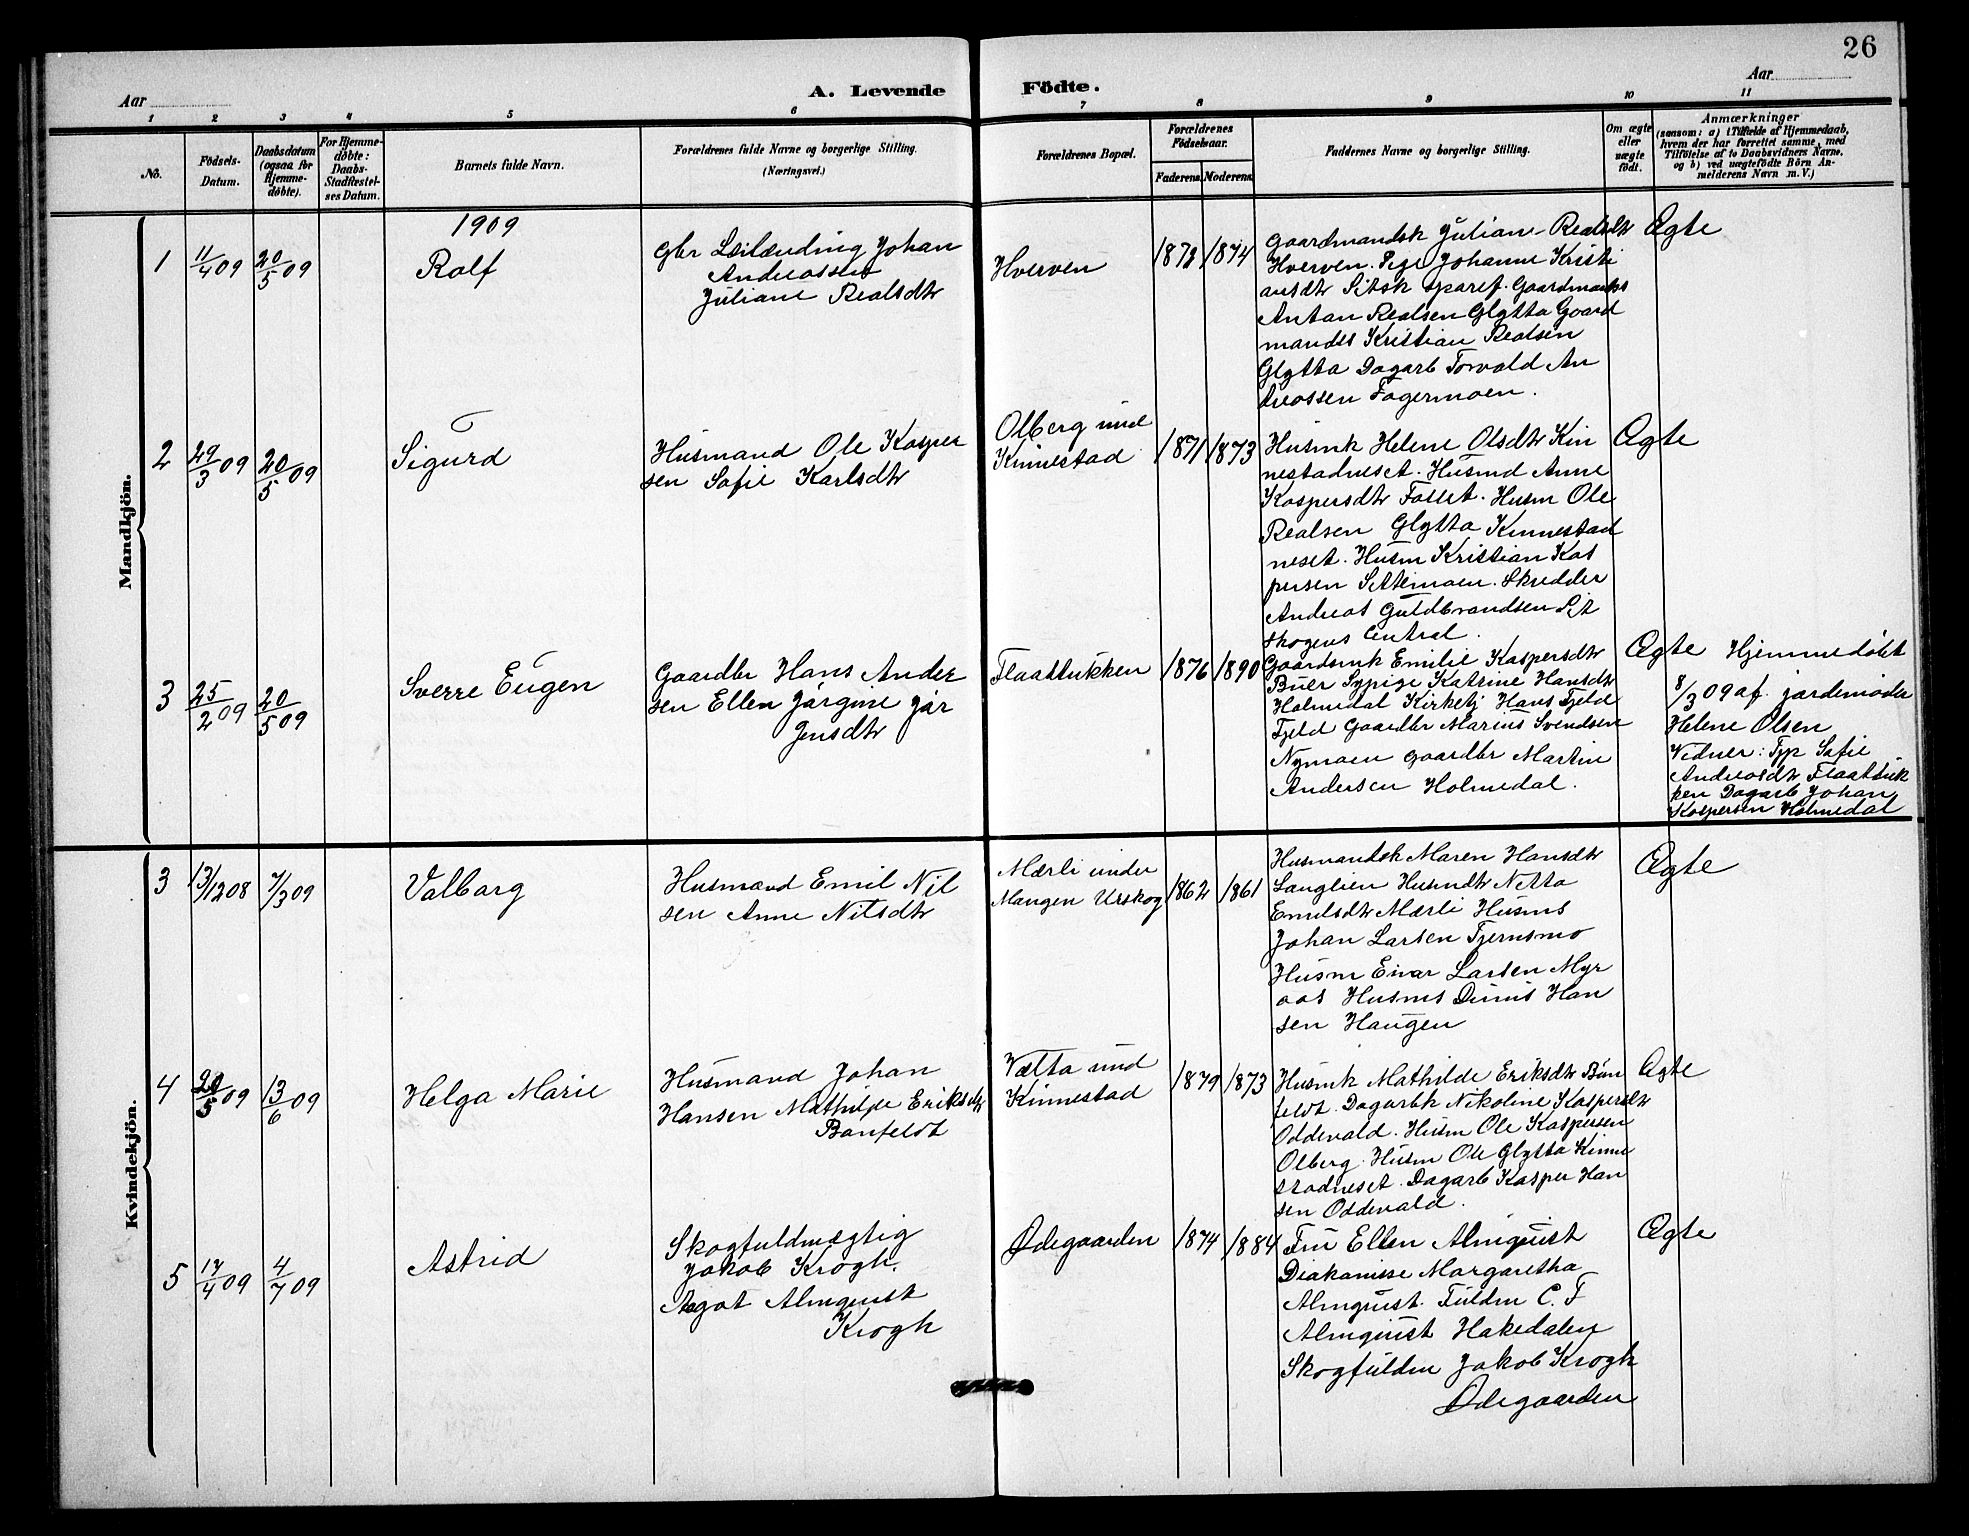 26
Aar
A. Levende
Födte.
Aar
1
2
3
4
5
6
7
8
9
10
11
No.
Födsels-
Datum.
Daabsdatum
(ogsaa for
Hjemme-
døbte).
For Hjemme-
døbte:
Daabs-
Stadfæstel-
ses Datum.
Barnets fulde Navn.
Forældrenes fulde Navne og borgerlige Stilling.
(Næringsvei.)
Forældrenes Bopæl.
Forældrenes
Födselsaar.
Faderens.
Moderens.
Faddernes Navne og borgerlige Stilling.
Om ægte
eller
uægte
født.
Anmærkninger
(saasom: a) i Tilfælde af Hjemmedaab,
hvem der har forrettet samme, med
Tilföielse af to Daabsvidners Navne,
og b) ved uægtefödte Börn An-
melderens Navn m.V.)
Mandkjön.
1909
1
11/4 09
20/5 09
Rolf
Gbr Leilænding Johan
Andreassen
Juliane Realsdtr
Hverven
1872
1874
Gaardmandsk Juliane Realsdtr
Hverven. Pige Johanne Kristi
ansdtr Sitsk Sparef. Gaardmands
Anton Realsen Glytta Gaard
mands Kristian Realsen
Glytta Dagarb Torvald An
dreassen Fagermoen.
Ægte
2
29/3 09
20/5 09
Sigurd
Husmand Ole Kasper
sen Sofie Karlsdtr
Olberg und
Kinnestad
1871
1873
Husmk Helene Olsdtr Kin
nestadneset. Husmd Anne
Kaspersdtr Fosset. Husm Ole
Realsen Glytta Kinnestad
neset. Husm Kristian Kas
persen Settemoen. Skredder
Andreas Guldbrandsen Sit
skogens Central.
Ægte
3
25/2 09
20/5 09
Sverre Eugen
Gaardbr Hans Ander
sen Ellen Jørgine Jør
gensdtr
Flaatbukken
1876
1890
Gaardsmk Emilie Kaspersdtr
Buer Sypige Katrine Hansdtr
Holmedal Kirketj Hans Fjeld
Fjeld Gaardbr Marius Svendsen
Nymoen Gaardbr Martin
Andersen Holmedal.
Ægte
Hjemmedøbt
8/3 09 af jordemoder
Helene Olsen
Vidner: Tjp Sofie
Andreasdtr Flaatbuk
ken Dagarb Johan
Kaspersen Holmedal
Kvindekjön.
3
13/12 08
7/3 09
Valborg
Husmand Emil Nil
sen Anne Nilsdtr
Mærli under
Mangen Urskog
1862
1861
Husmandsk Maren Hansdtr
Langlien Husmdtr Netta
Emilsdtr Mærli Husms
Johan Larsen Tjernsmo
Husm Einar Larsen Myr
aas Husms Dinus Han
sen Haugen
Ægte
4
20/5 09
13/6 09
Helga Marie
Husmand Johan
Hansen Mathilde Eriksdtr
Bonfeldt
Vætta und
Kinnestad
1879
1873
Husmk Mathilde Eriksdtr Bon
feldt. Dagarbk Nikoline Kaspersdtr
Oddevald. Husm Ole Kaspersen
Olberg. Husm Ole Glytta Kinne
stadneset. Dagarb Kasper Han
sen Oddevald.
Ægte
5
17/4 09
4/7 09
Astrid
Skogfuldmægtig
Jakob Krogh.
Agot Almquist
Krogh
Ødegaarden
1874
1884
Fru Ellen Almquist
Diakonisse Margaretha
Almquist. Fuldm C. F
Almquist Hakedalen
Skogfuldm Jakob Krogh
Ødegaarden
Ægte